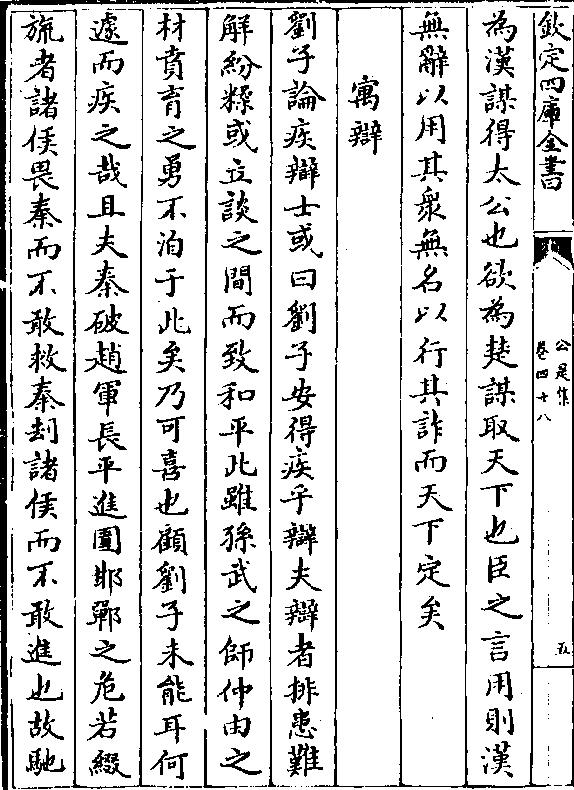 欽定四庫全書
公是集
卷四十八
五
為漢謀得太公也欲為楚謀取天下也臣之言用則漢
無辭以用其眾無名以行其詐而天下定矣
寓辯
劉子論疾辯士或曰劉子安得疾乎辯夫辯者排患難
解紛糅或立談之間而致和平此雖孫武之師仲由之
材賁育之勇不洎于此矣乃可喜也顧劉子未能耳何
遽而疾之哉且夫秦破趙軍長平進圍邯鄲之危若綴
旒者諸侯畏秦而不敢救秦刦諸侯而不敢進也故馳